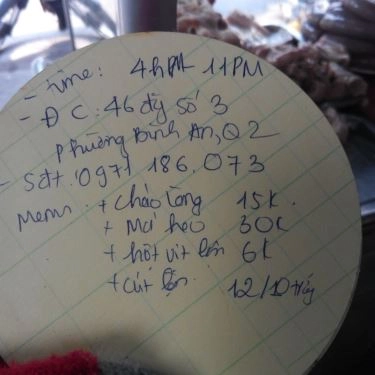 - Time: 4h PM 11PM
- ĐC: 46 đg số 3
phường Bình An, Q2
- Sđt: 0971 186.073
Menu: + cháo lòng 15k.
+ Mơí heo 30k
+ hột vịt lộn 6k
+ cút lộn. 12/10 trứng